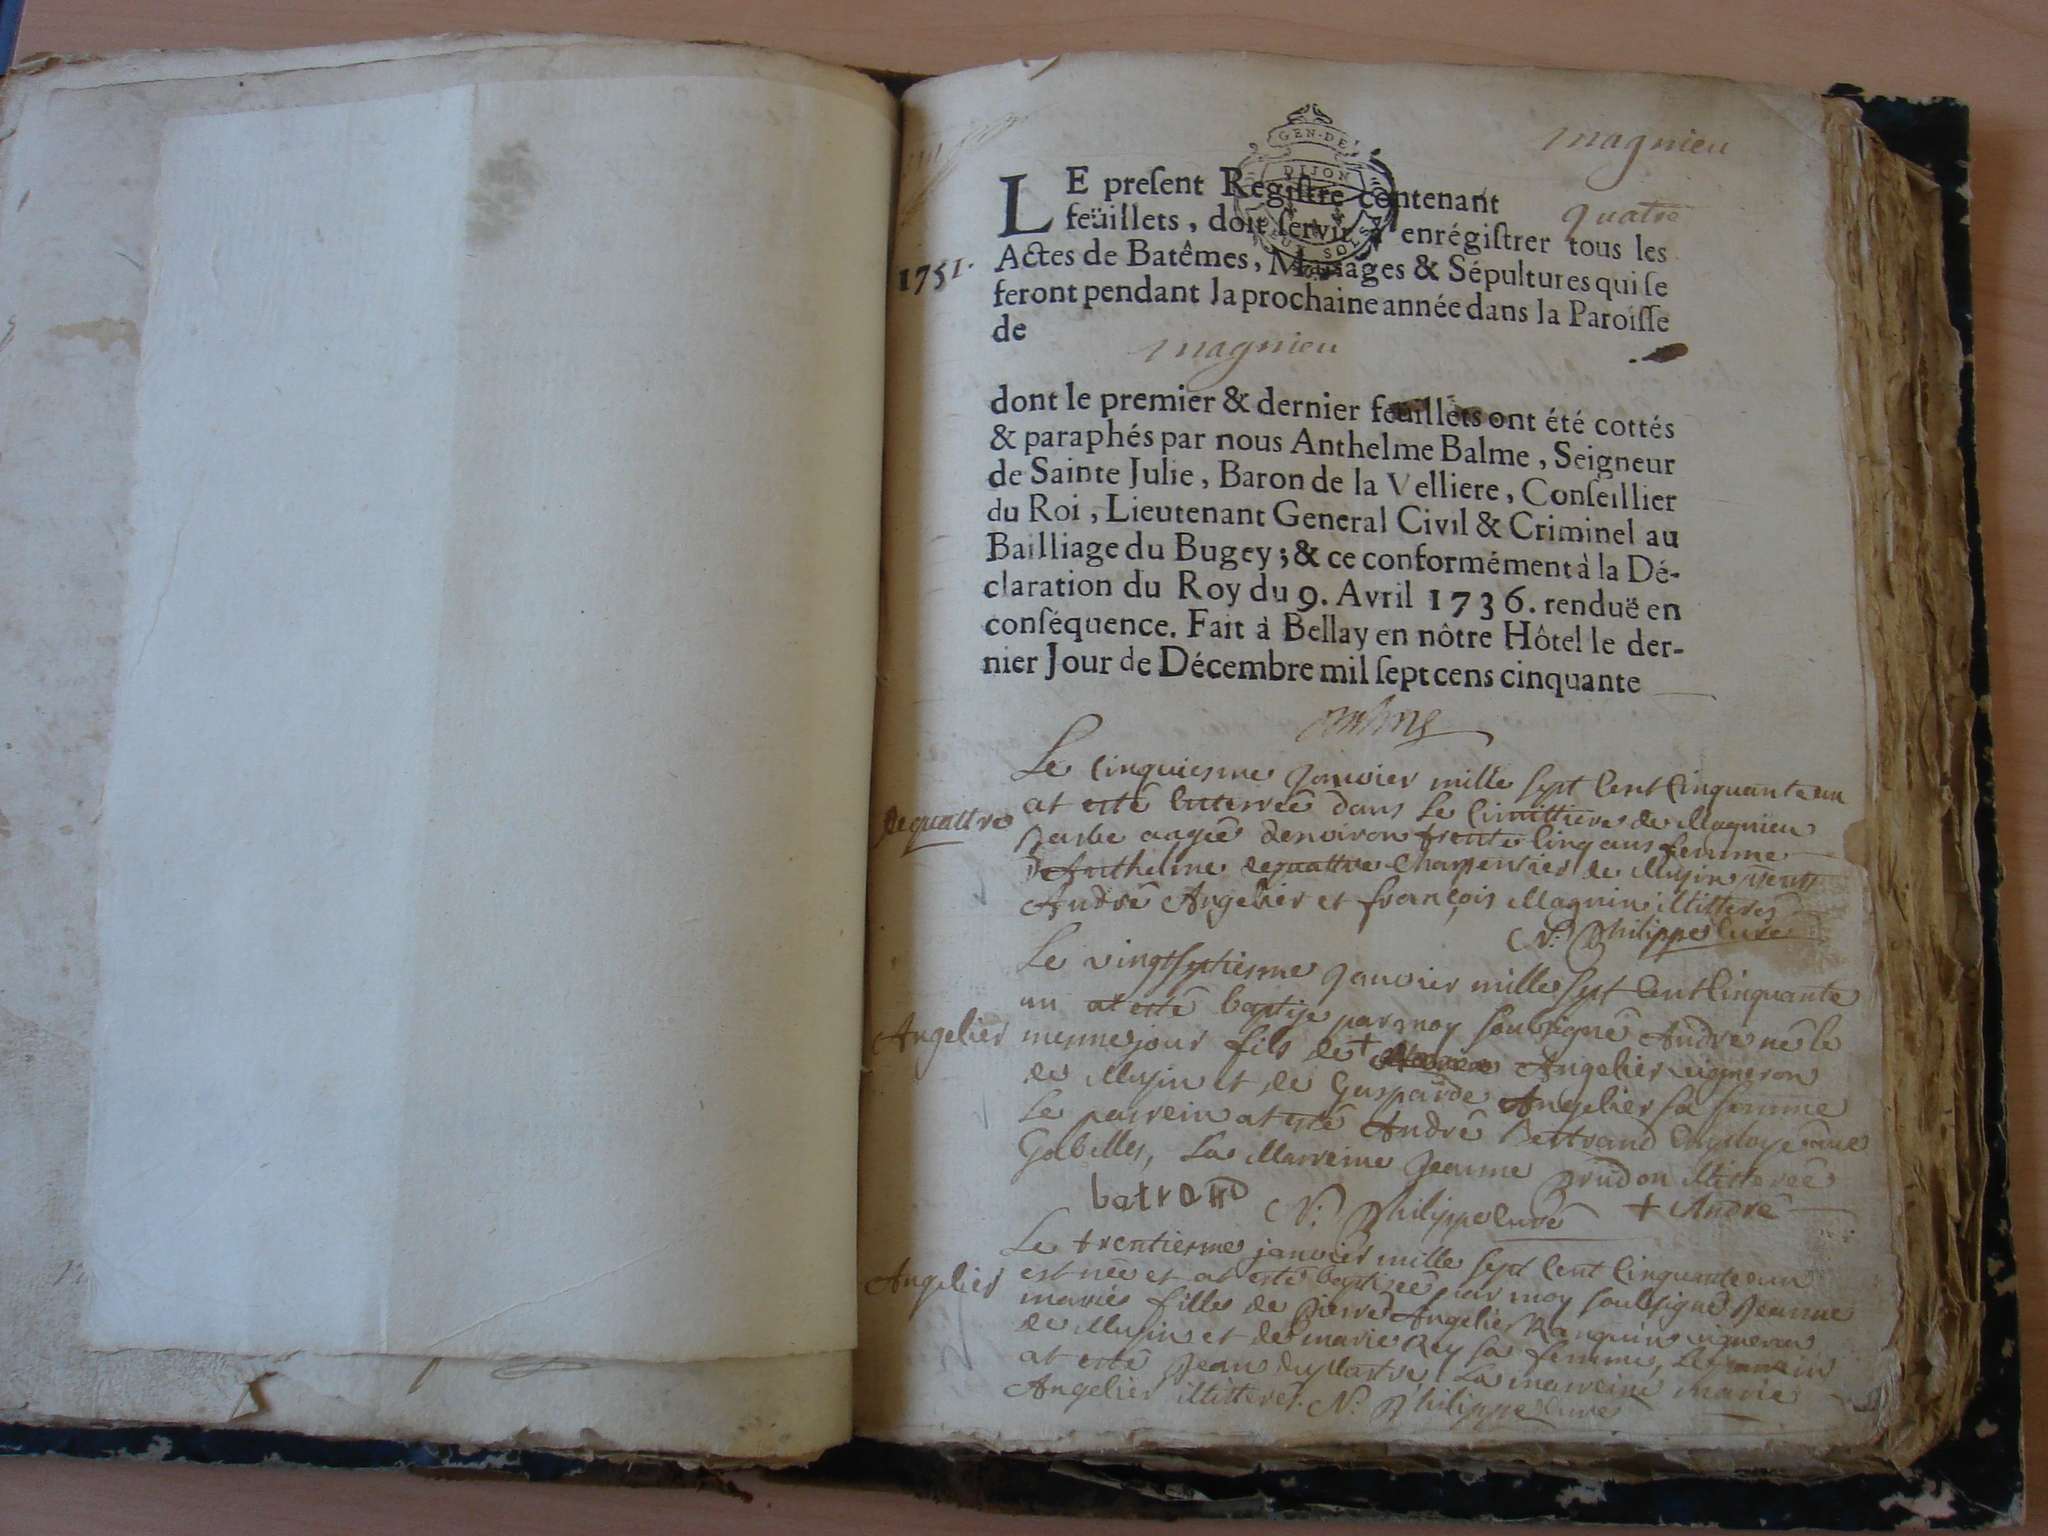 magnieu
GEN·DE
DIJON
LE preſent Regiſtre contenant quatre
feüillets, doit ſervir à enrégiſtrer tous les
1751. Actes de Batêmes, Mariages & Sépultures qui ſe
feront pendant la prochaine année dans la Paroiſſe
de magnieu
dont le premier & dernier feuillets ont été cottés
& paraphés par nous Anthelme Balme, Seigneur
de Sainte Julie, Baron de la Velliere, Conſeillier
du Roi, Lieutenant General Civil & Criminel au
Bailliage du Bugey; & ce conformément à la Dé-
claration du Roy du 9. Avril 1736. renduë en
conſéquence. Fait à Bellay en nôtre Hôtel le der-
nier Jour de Décembre mil ſept cens cinquante
Le cinquiesme janvier mille sept cent cinquante un
at esté enterreé dans le cimittiere de Magnieu
dequattre
aagée denviron trente cinq ans femme
d'Anthelme dequattre charpentier de Musin
André Angelier et françois Magnin illitteres
N: Philippe curé
Le vingtseptiesme janvier mille sept cent cinquante
un at esté baptise par moy soubsigné André né le
Angelier mesme jour fils de + Angelier vigneron
de Musin et de Gasparde Angelier sa femme
Le parrein at esté André Bertrand employé aux
Gabelles, La Marreine Jeanne prudon illitereé
batrand N: Philippe curé + André
Le trentiesme janvier mille sept cent cinquante un
est neé et at esté baptiseé par moy soubsigné Jeanne
Angelier marie fille de pierre Angelier vigneron
de Musin et de marie Rey sa femme, Le parrein
at esté Jean La marreine marie
Angelier illitteres. N: Philippe curé